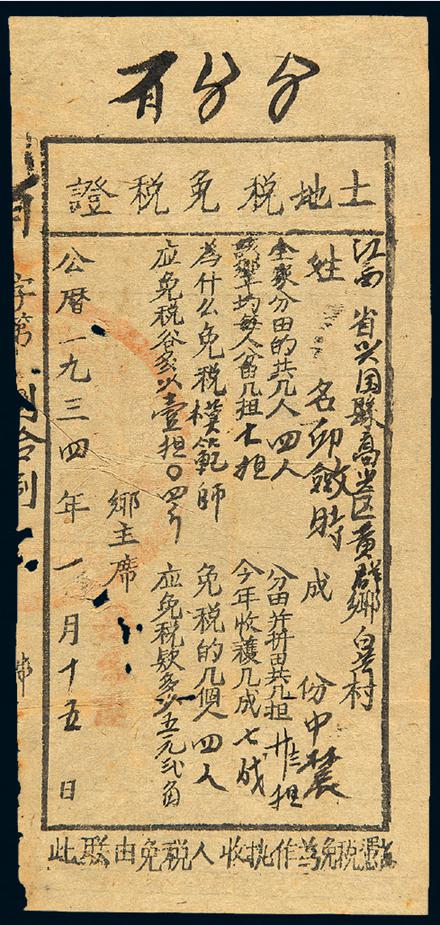 土地税免税證
江西省兴国縣高区黄群鄉村
姓名時成份中農
全家分田的共几人四人分田并拼田共几担担
鄉平均每人分田几担七担今年收穫几成七成
為什么免税模範師免税的几個人四人
应免税谷多少壹担〇四斤应免税款多少五元弍角
鄉主席
公曆一九三四年一月十五日
字第
此联由免税人收执作為免税